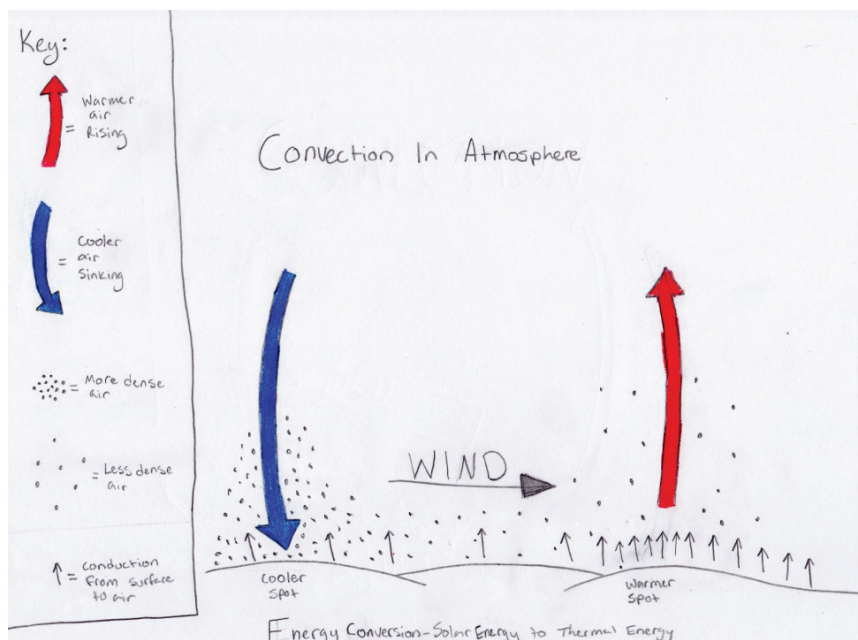 Key:
= Warmer
air
Rising
= Cooler
air
Sinking
= More dense
air
= Less dense
air
= conduction
from surface
to air
Convection In Atmosphere
WIND
Cooler
Spot
Warmer
Spot
Energy Conversion-Solar Energy to Thermal Energy